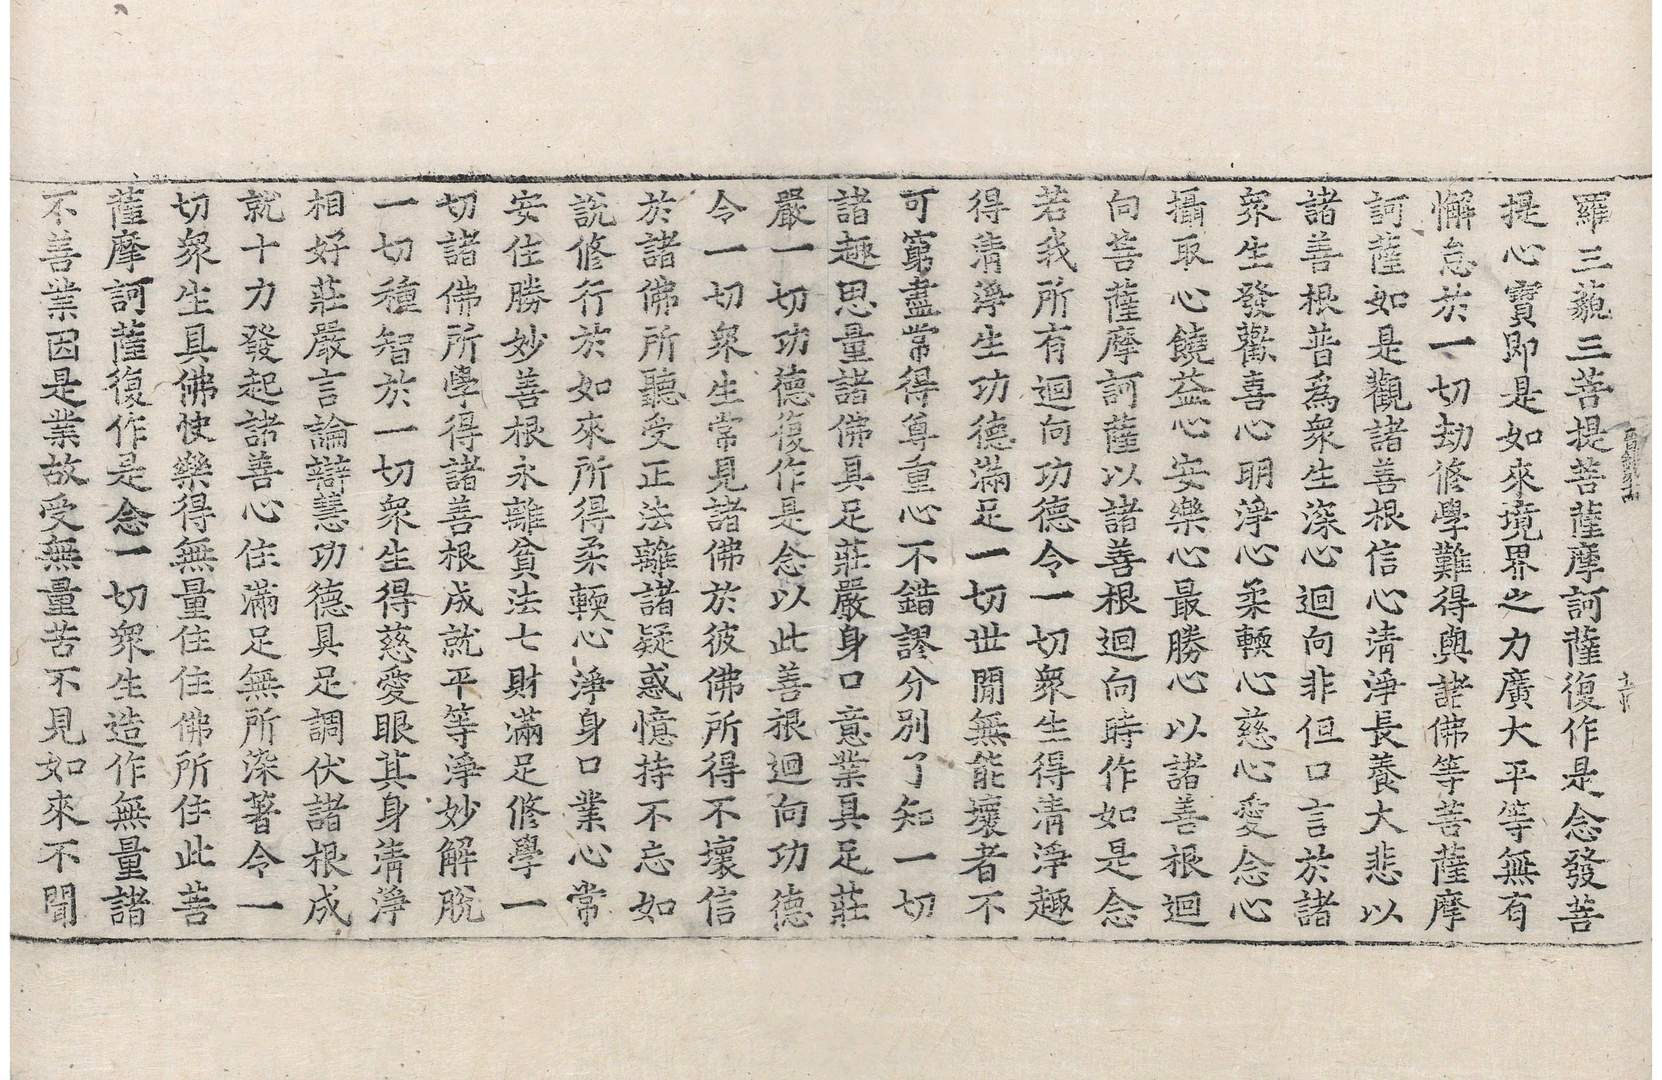 羅三藐三菩提菩薩摩訶薩復作是念發菩
提心寶即是如來境界之力廣大平等無有
懈怠於一切劫修學難得與諸佛等菩薩摩
訶薩如是觀諸善根信心清淨長養大悲以
諸善根普為衆生深心迴向非但口言於諸
衆生發歡喜心明淨心柔輭心慈心愛念心
攝取心饒益心安樂心最勝心以諸善根迴
向菩薩摩訶薩以諸善根迴向時作如是念
若我所有迴向功德令一切衆生得清淨趣
得清淨生功德滿足一切世閒無能壞者不
可窮盡常得尊重心不錯謬分別了知一切
諸趣思量諸佛具足莊嚴身口意業具足莊
嚴一切功德復作是念以此善根迴向功德
令一切衆生常見諸佛於彼佛所得不壞信
於諸佛所聽受正法離諸疑惑憶持不忘如
說修行於如來所得柔輭心淨身口業心常
安住勝妙善根永離貧法七財滿足修學一
切諸佛所學得諸善根成就平等淨妙解脫
一切種智於一切衆生得慈愛眼其身清淨
相好莊嚴言論辯慧功德具足調伏諸根成
就十力發起諸善心住滿足無所染著令一
切衆生具佛快樂得無量住住佛所住此菩
薩摩訶薩復作是念一切衆生造作無量諸
不善業因是業故受無量苦不見如來不聞